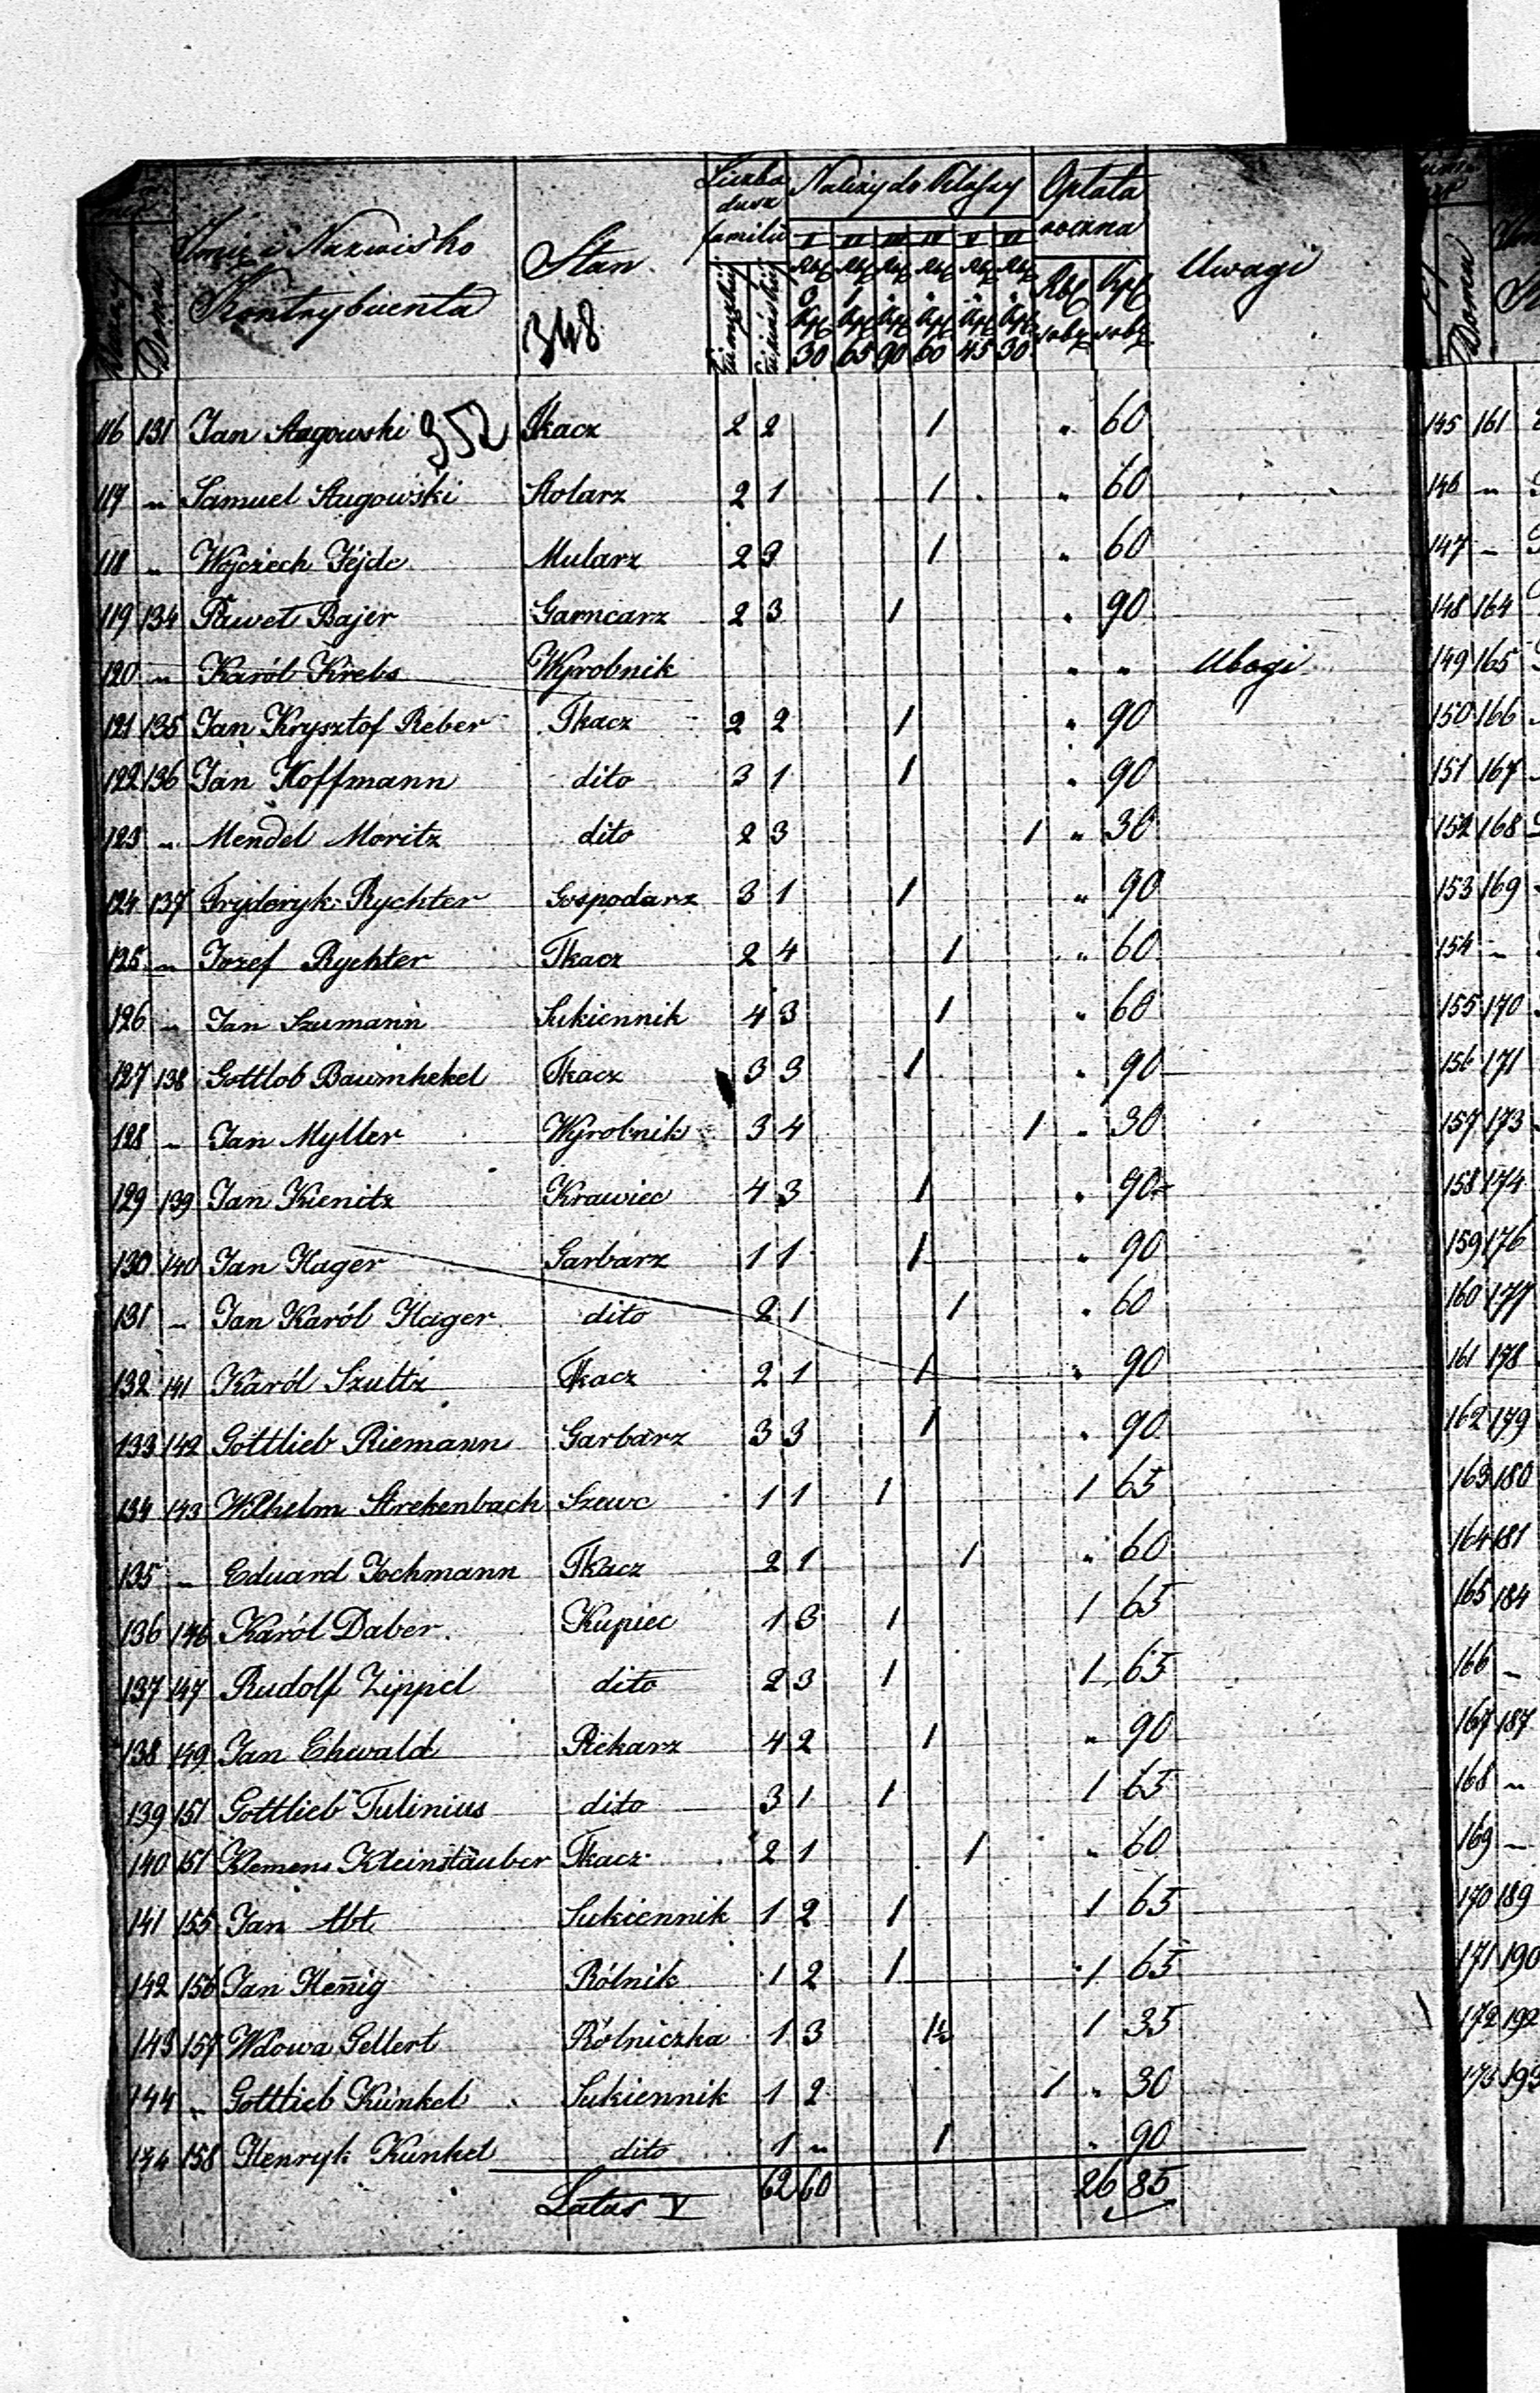 Imię i Nazwisko Kontrybuenta
Stan
Liczba dusz familii
Należy do Klassy
Opłata roczna
Uwagi
Domu
I II III IV V VI
Rbl Rbl Rbl Rbl Rbl Rbl
30 65 90 60 45 30
348
116 131 Jan 352 Tkacz 2 2 1 " 60
117 " Samuel Stugowski Stolarz 2 1 1 " 60
118 " Wojciech Fejde Mularz 2 3 1 " 60
119 134 Paweł Bajer Garncarz 2 3 1 " 90
120 " Karól Krebs Wyrobnik " " Ubogi
121 135 Jan Krysztof Reber Tkacz 2 2 1 " 90
122 136 Jan Hoffmann dito 3 1 1 " 90
123 " Mendel Moritz dito 2 3 1 " 30
124 137 Fryderyk Rychter Gospodarz 3 1 1 " 90
125 " Jozef Rychter Tkacz 2 4 1 " 60
126 " Jan Szumann Sukiennik 4 3 1 " 60
127 138 Gottlob Baumhekel Tkacz 3 3 1 " 90
128 " Jan Myller Wyrobnik 3 4 1 " 30
129 139 Jan Kienitz Krawiec 4 3 1 " 90
130 140 Jan Hager Garbarz 1 1 1 " 90
131 " Jan Karól Hager dito 2 1 1 " 60
132 141 Karól Szultz Tkacz 2 1 1 " 90
133 142 Gottlieb Riemann Garbarz 3 3 1 " 90
134 143 Wilhelm Strekenbach Szewc 1 1 1 1 65
135 " Eduard Jochmann Tkacz 2 1 1 " 60
136 146 Karól Daber Kupiec 1 3 1 1 65
137 147 Rudolf Zippel dito 2 3 1 1 65
138 149 Jan Ehwald Piekarz 4 2 1 " 90
139 151 Gottlieb Tulinius dito 3 1 1 1 65
140 151 Klemens Kleinstäuber Tkacz 2 1 1 " 60
141 155 Jan Abt Sukiennik 1 2 1 1 65
142 156 Jan Hennig Rólnik 1 2 1 1 65
143 157 Wdowa Gellert Rólniczka 1 3 1½ 1 35
144 " Gottlieb Künkel Sukiennik 1 2 1 " 30
144 158 Henryk Künkel dito 1 " 1 " 90
Latus V 62 60 26 85
Domu
145 161
146 "
147 "
148 164
149 165
150 166
151 167
152 168
153 169
154 "
155 170
156 171
157 173
158 174
159 176
160 177
161 178
162 179
163 180
164 181
165 184
166 "
167 187
168 "
169 "
170 189
171 190
172 192
173 193